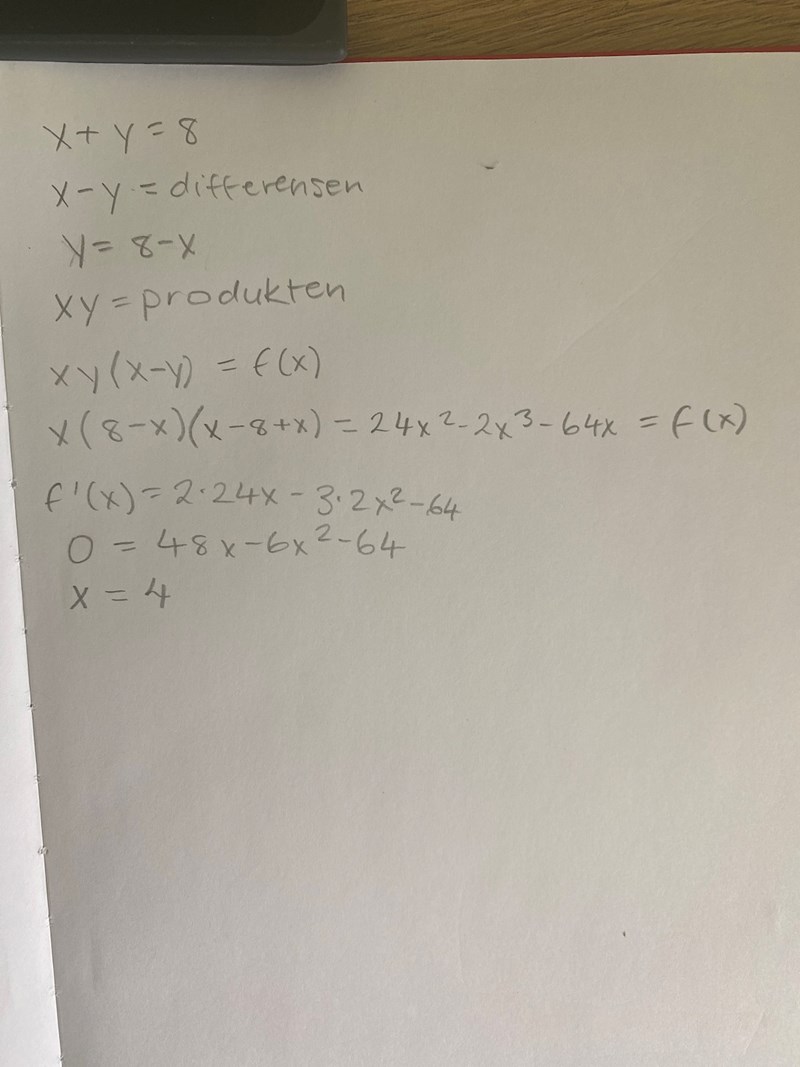 x+y=8
x-y=differensen
y=8-x
xy=produkten
xy(x-y)=f(x)
x(8-x)(x-8+x)=24x²-2x³-64x=f(x)
f'(x)=2·24x-3·2x²-64
0=48x-6x²-64
x=4